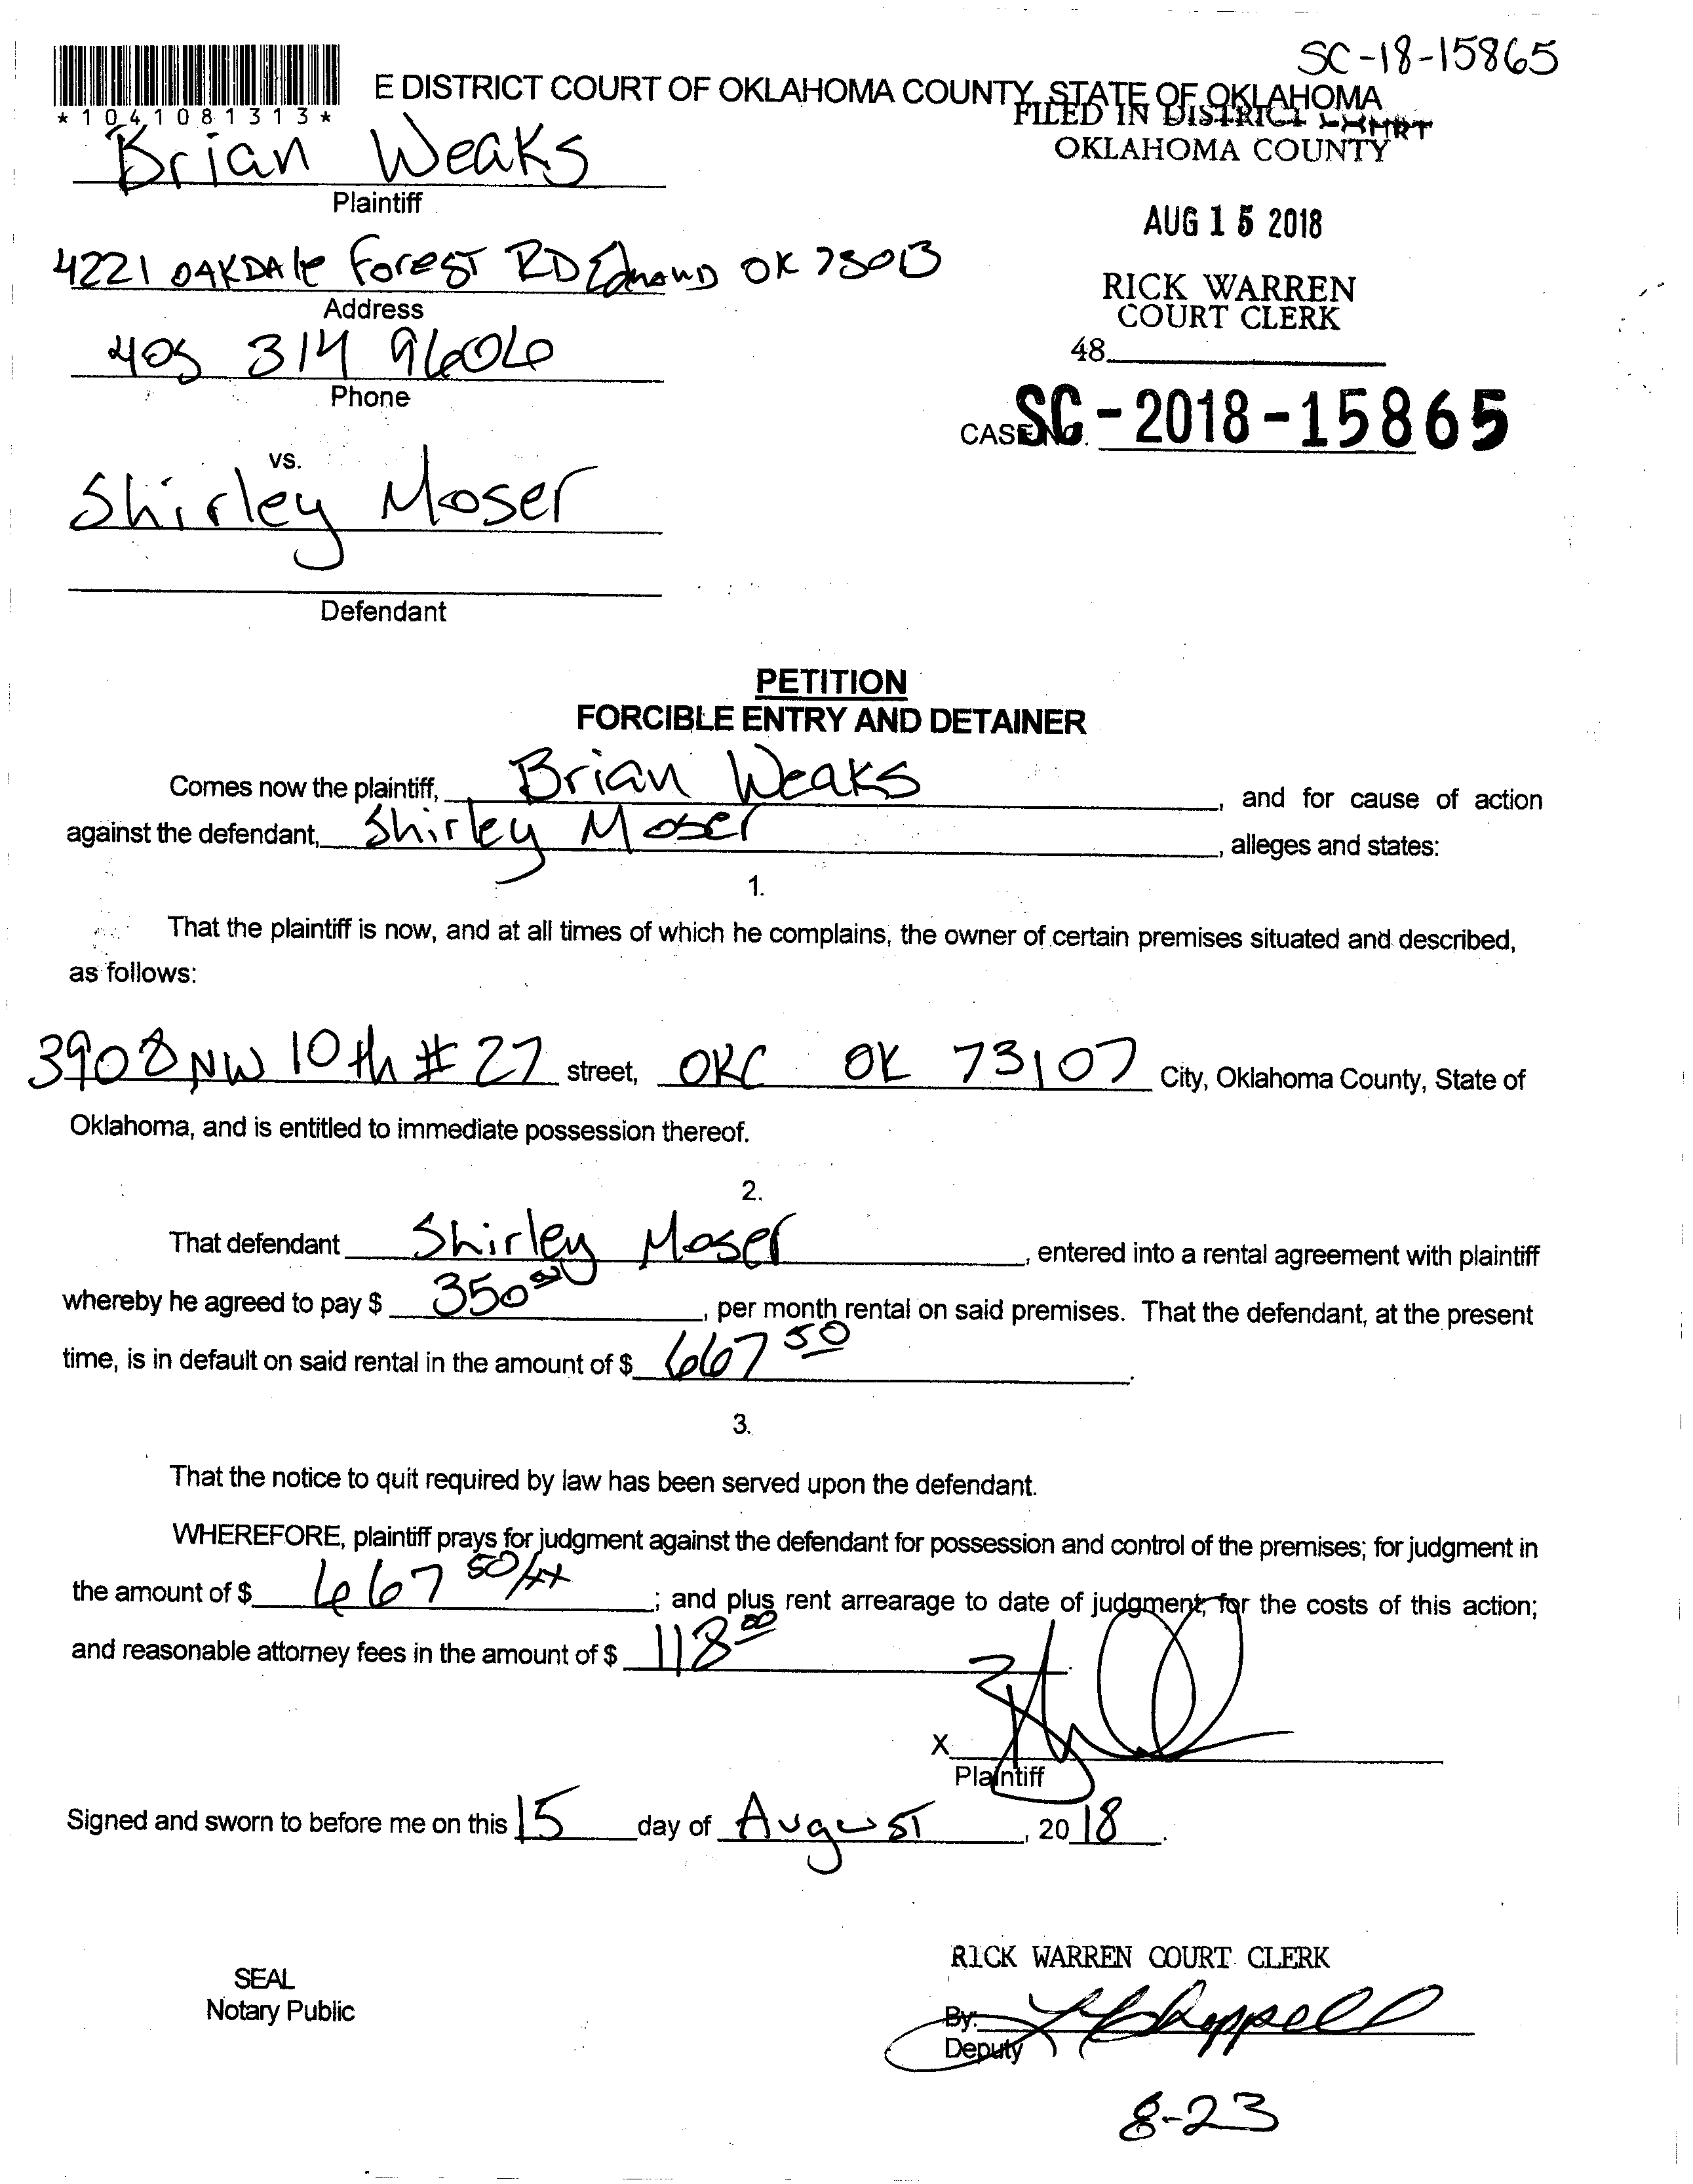 SC-18-15865
*1041081313*
E DISTRICT COURT OF OKLAHOMA COUNTY, STATE OF OKLAHOMA
FILED IN DISTRICT COURT
OKLAHOMA COUNTY
Brian Weaks
Plaintiff
AUG 15 2018
4221 OAKDAle Forest RD Edmond OK 73013
Address
RICK WARREN
COURT CLERK
405 314 9606
Phone
48
CASE NO. SC-2018-15865
vs.
Shirley Moser
Defendant
PETITION
FORCIBLE ENTRY AND DETAINER
Comes now the plaintiff, Brian Weaks, and for cause of action
against the defendant, Shirley Moser, alleges and states:
1.
That the plaintiff is now, and at all times of which he complains, the owner of certain premises situated and described,
as follows:
3908 NW 10th # 27 street, OKC OK 73107 City, Oklahoma County, State of
Oklahoma, and is entitled to immediate possession thereof.
2.
That defendant Shirley Moser, entered into a rental agreement with plaintiff
whereby he agreed to pay $ 350 00, per month rental on said premises. That the defendant, at the present
time, is in default on said rental in the amount of $ 667 50.
3.
That the notice to quit required by law has been served upon the defendant.
WHEREFORE, plaintiff prays for judgment against the defendant for possession and control of the premises; for judgment in
the amount of $ 667 50/xx; and plus rent arrearage to date of judgment, for the costs of this action;
and reasonable attorney fees in the amount of $ 118 00
X
Plaintiff
Signed and sworn to before me on this 15 day of August, 20 18.
RICK WARREN COURT CLERK
SEAL
Notary Public
By:
Deputy
8-23